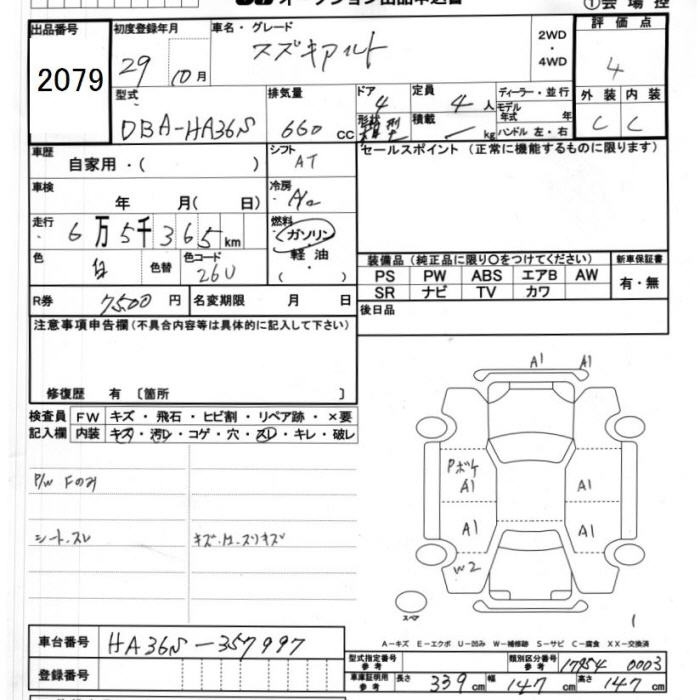 オークション出品申込書
①会場控
出品番号
2079
初度登録年月
29 10月
車名・グレード
スズキアルト
2WD
・
4WD
評価点
4
型式
DBA-HA36S
排気量
660 cc
ドア
4
形状
定員
4 人
積載
kg
ディーラー・並行
モデル年式 年
ハンドル 左・右
外装 内装
C C
車歴
自家用・( )
シフト
AT
セールスポイント (正常に機能するものに限ります)
車検
年 月( 日)
冷房
A/c
走行
6万5千365km
燃料
ガソリン
・
軽油
・
( )
色
白
色替
色コード
26U
装備品 (純正品に限り〇をつけてください)
新車保証書
PS PW ABS エアB AW
SR ナビ TV カワ
有・無
R券
7500円
名変期限 月 日
後日品
注意事項申告欄(不具合内容等は具体的に記入して下さい)
修復歴 有 〔箇所 〕
検査員記入欄
FW キズ・飛石・ヒビ割・リペア跡・×要
内装 キズ・汚レ・コゲ・穴・スレ・キレ・破レ
P/W Fのみ
シート.スレ
キズ.凹.スリキズ
A1 A1
Pボケ
A1 A1
A1 A1
W2
スペア
A-キズ E-エクボ U-凹み W-補修跡 S-サビ C-腐食 XX-交換済
車台番号
HA36S-357997
登録番号
型式指定番号
参考
類別区分番号
参考
17954 0003
車庫証明用
参考
長さ 339cm 幅 147cm 高さ 147cm